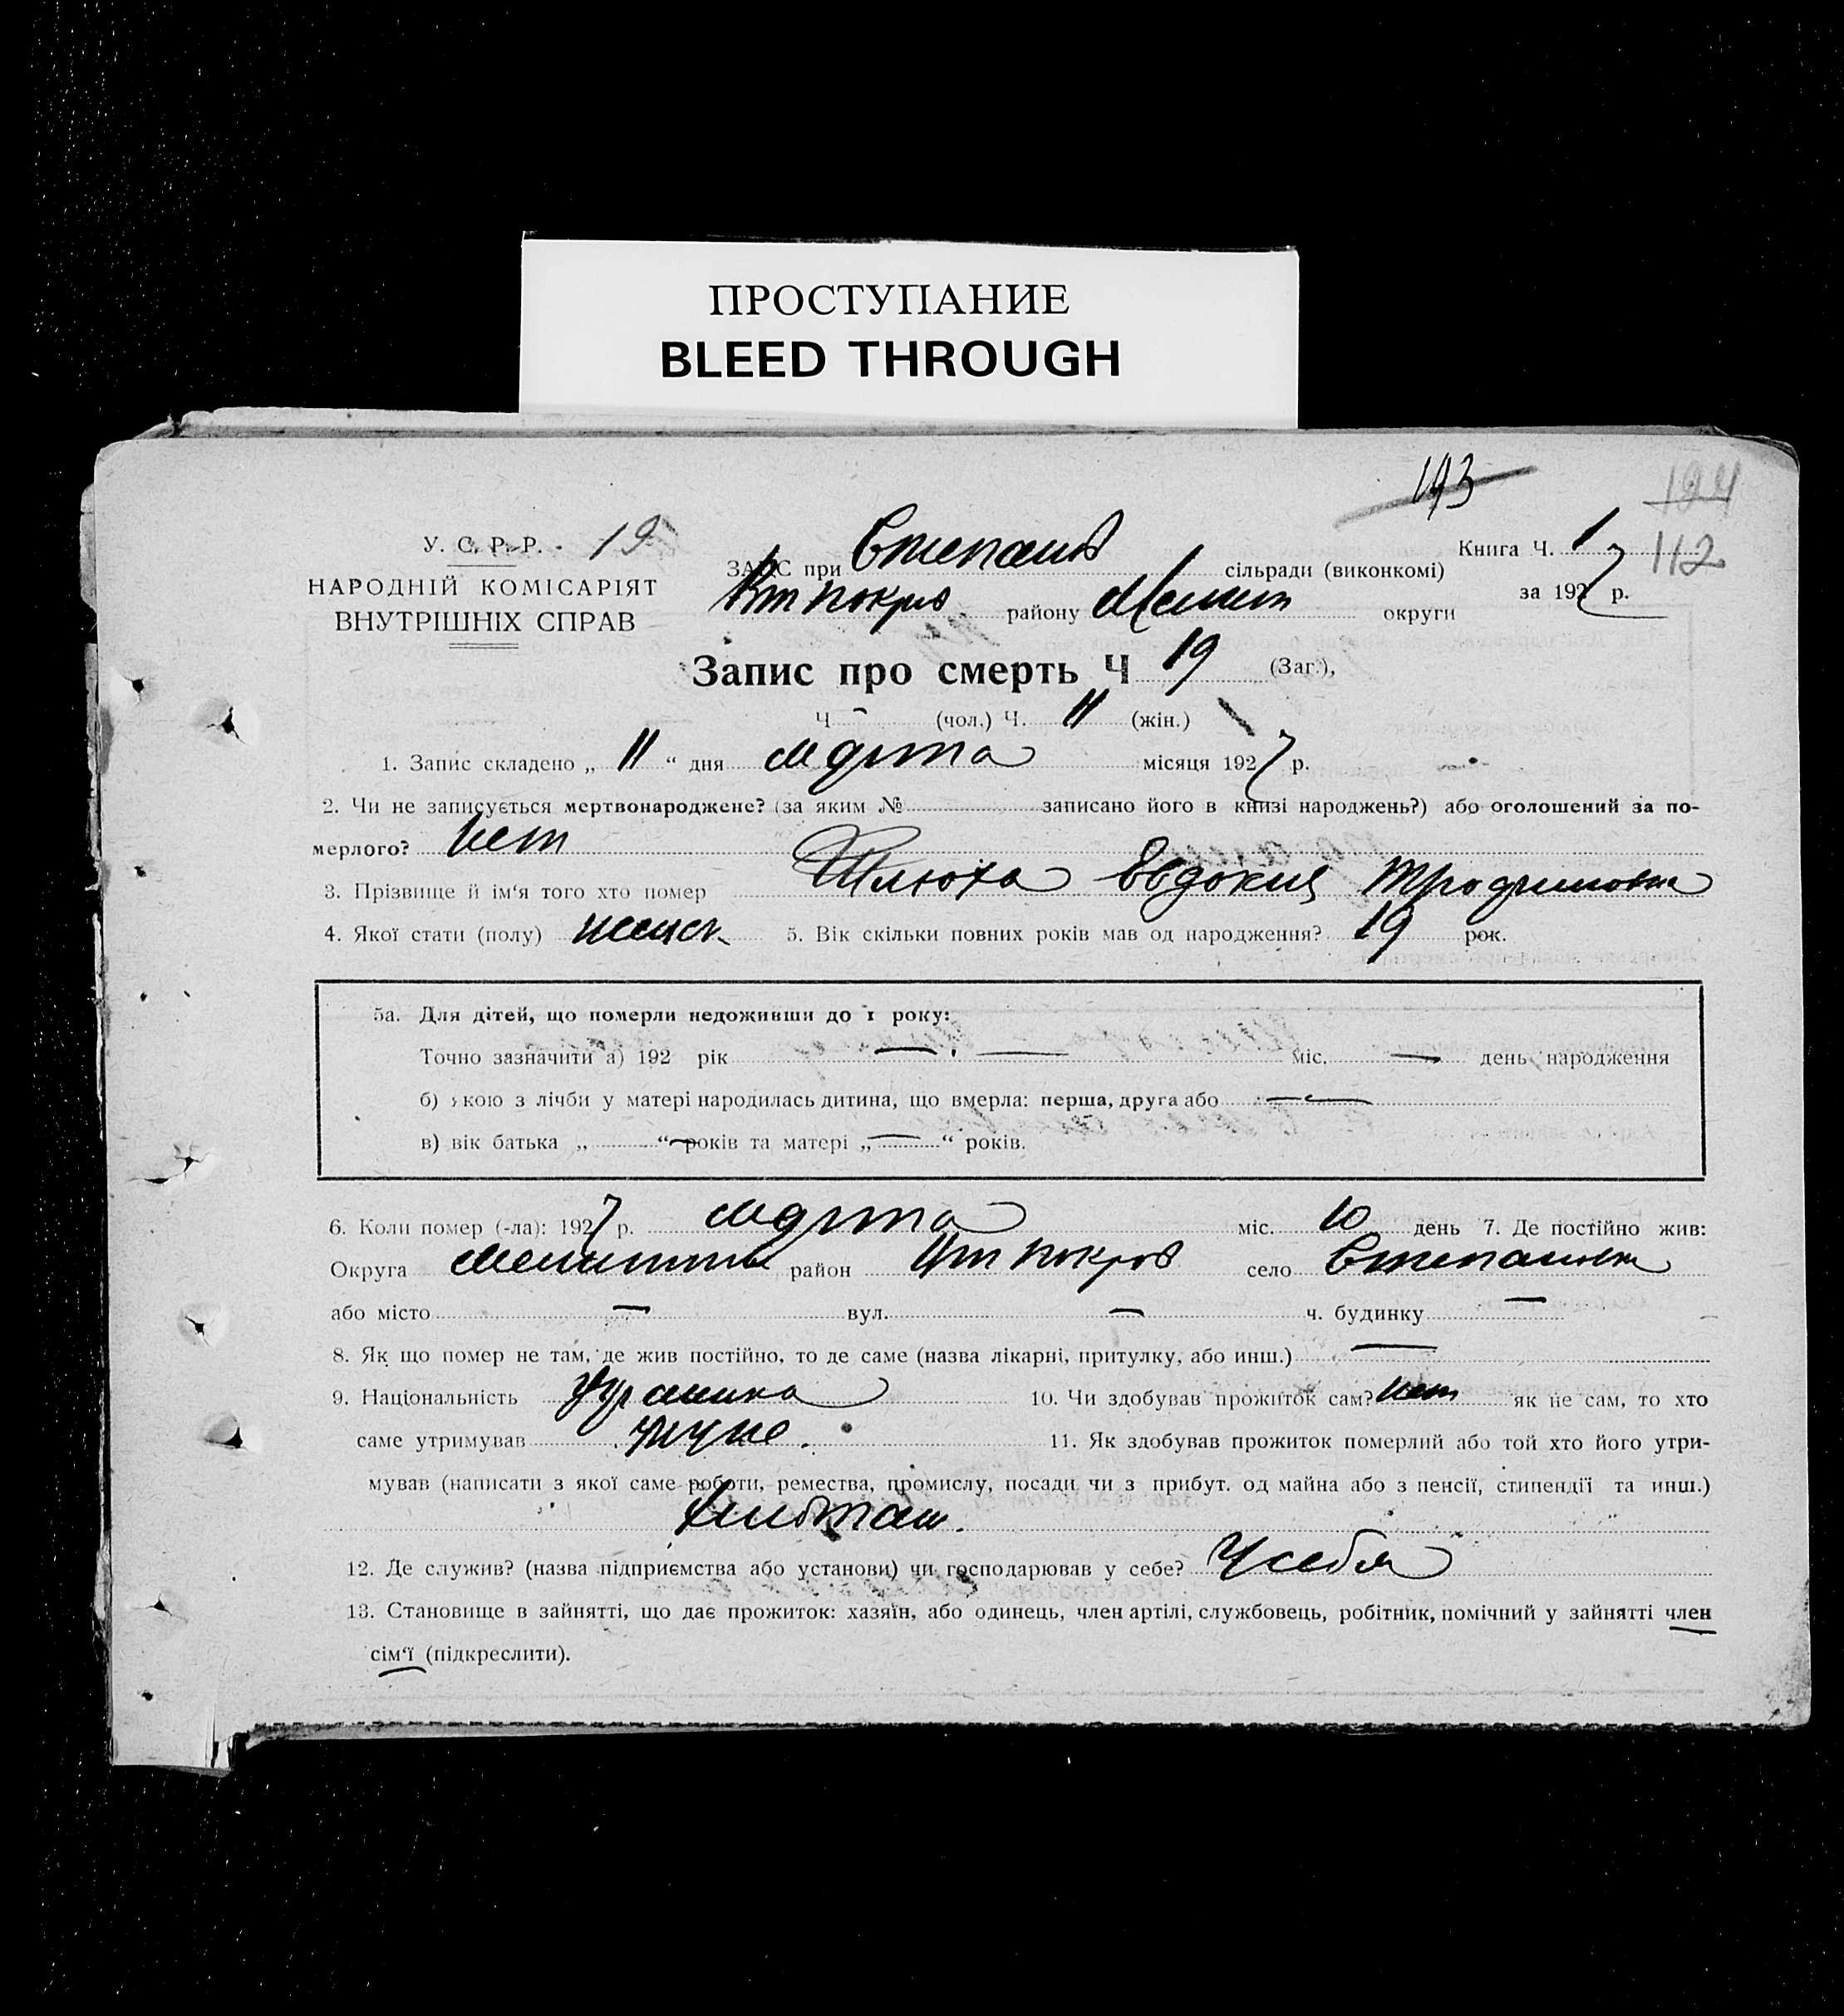 ПРОСТУПАНИЕ
BLEED THROUGH
193
194
У. С. Р. Р. 19
ЗАГС при Степанов сільради (виконкомі)
Книга Ч. 1 112
НАРОДНІЙ КОМІСАРІЯТ
району Мелит округи
за 1927 р.
ВНУТРІШНІХ СПРАВ
Запис про смерть Ч 19 (Заг.),
Ч - (чол.) Ч. 11 (жін.)
1. Запис складено „ 11 “ дня марта місяця 1927 р.
2. Чи не записується мертвонароджене? (за яким № записано його в книзі народжень?) або оголошений за по-
мерлого? нет
3. Прізвище й ім‘я того хто помер Шлюха Евдокия Трофимовна
4. Якої стати (полу) женск. 5. Вік скільки повних років мав од народження? 19 рок.
5а. Для дітей, що померли недоживши до 1 року:
Точно зазначити а) 192 рік — — міс. — день народження
б) якою з лічби у матері народилась дитина, що вмерла: перша, друга або —
в) вік батька „ — “ років та матері „ — “ років.
6. Коли помер (-ла): 1927 р. марта міс. 10 день 7. Де постійно жив:
Округа район покров село Степановка
або місто — вул. — ч. будинку —
8. Як що помер не там, де жив постійно, то де саме (назва лікарні, притулку, або инш.) —
9. Національність 10. Чи здобував прожиток сам? нет як не сам, то хто
саме утримував муже. 11. Як здобував прожиток померлий або той хто його утри-
мував (написати з якої саме роботи, ремества, промислу, посади чи з прибут. од майна або з пенсії, стипендії та инш.)
12. Де служив? (назва підприємства або установи) чи господарював у себе? У себя
13. Становище в зайнятті, що дає прожиток: хазяїн, або одинець, член артілі, службовець, робітник, помічний у зайнятті член
сім‘ї (підкреслити).